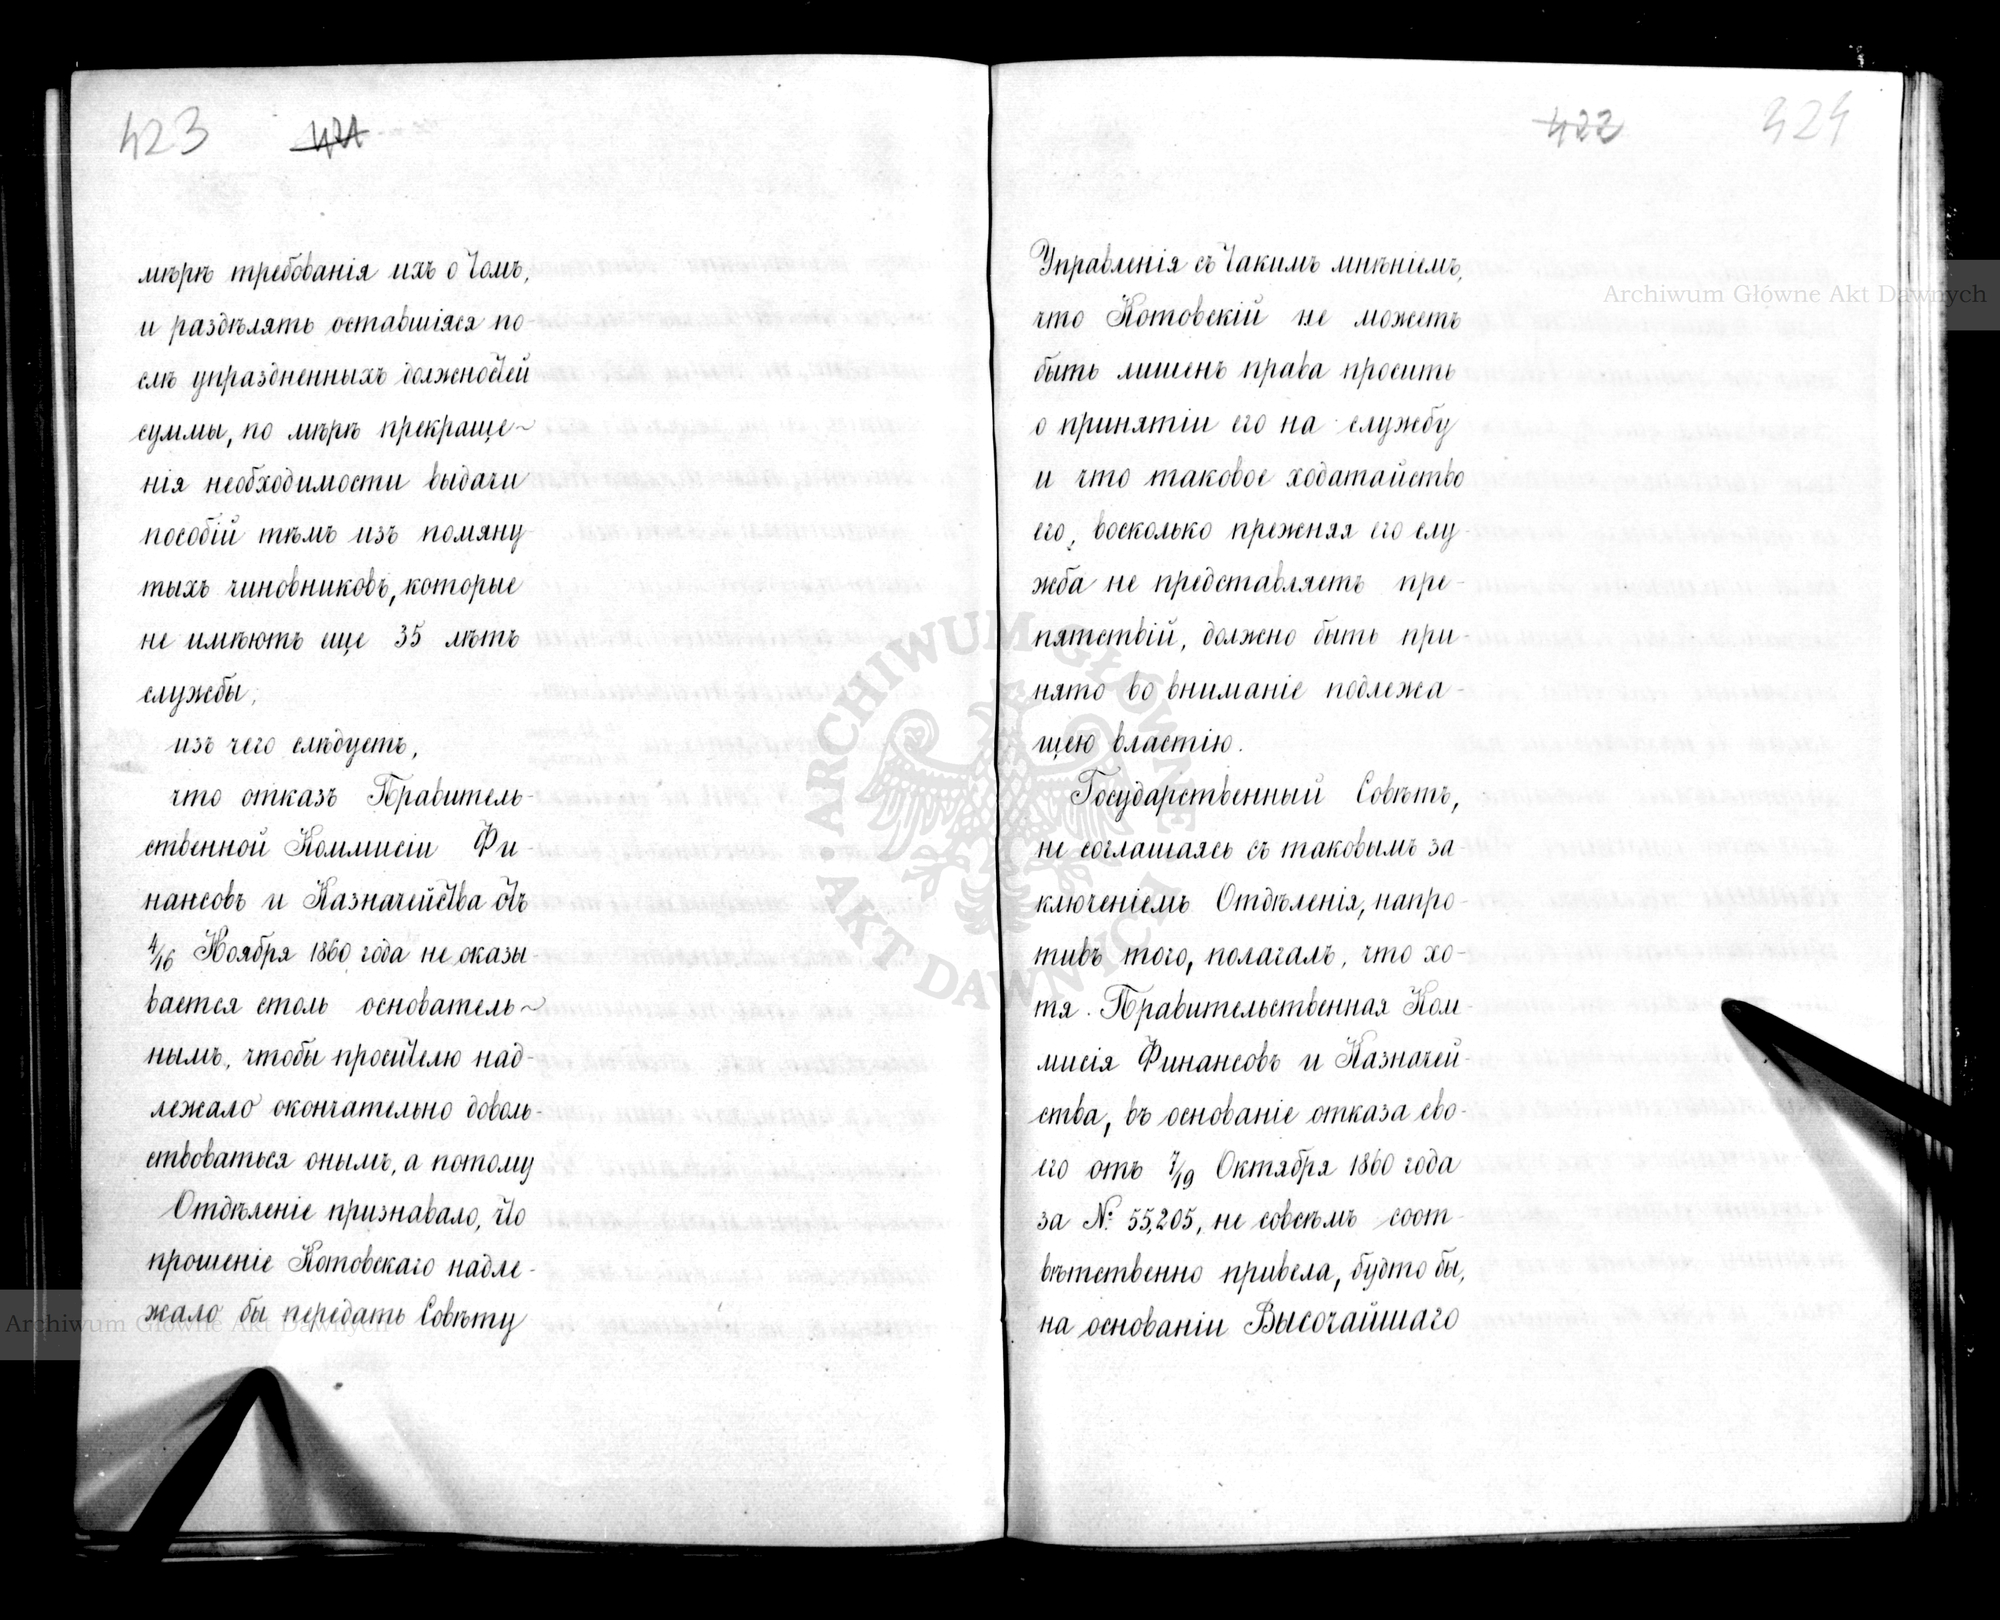 423 421
мѣрѣ требованія ихъ о томъ,
и раздѣлять оставшіяся по-
слѣ упраздненныхъ должностей
суммы, по мѣрѣ прекраще-
нія необходимости выдачи
пособій тѣмъ изъ помяну-
тыхъ чиновниковъ, которые
не имѣютъ еще 35 лѣтъ
службы;
изъ чего слѣдуетъ,
что отказъ Правитель-
ственной Коммисіи Фи-
нансовъ и Казначейства отъ
4/16 Ноября 1860 года не оказы-
вается столь основатель-
нымъ, чтобы просителю над-
лежало окончательно доволь-
ствоваться онымъ, а потому
Отдѣленіе признавало, что
прошеніе Котовскаго надле-
жало бы передать Совѣту
422 424
Управленія съ такимъ мнѣніемъ,
что Котовскій не можетъ
быть лишенъ права просить
о принятіи его на службу
и что таковое ходатайство
его, восколько прежняя его слу-
жба не представляетъ пре-
пятствій, должно быть при-
нято во вниманіе подлежа-
щею властію.
Государственный Совѣтъ,
не соглашаясь съ таковымъ за
ключеніемъ Отдѣленія, напро-
тивъ того, полагалъ, что хо-
тя Правительственная Ком-
мисія Финансовъ и Казначей-
ства, въ основаніе отказа сво-
его отъ 7/19 Октября 1860 года
за № 55,205, не совсѣмъ соот-
вѣтственно привела, будто бы,
на основаніи Высочайшаго
Archiwum Główne Akt Dawnych
Archiwum Główne Akt Dawnych
ARCHIWUM GŁÓWNE AKT DAWNYCH